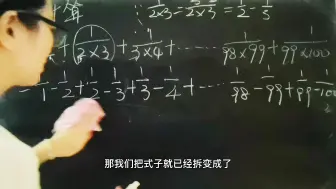 算 1/2×3 = 1/2×3 = 1/2 - 1/3
+ (1/2×3) + 1/3×4 + ······ 1/98×99 + 1/99×100
1/1 - 1/2 + 1/2 - 1/3 + 1/3 - 1/4 + ······ 1/98 - 1/99 + 1/99 - 1/100
那我们把式子就已经拆变成了